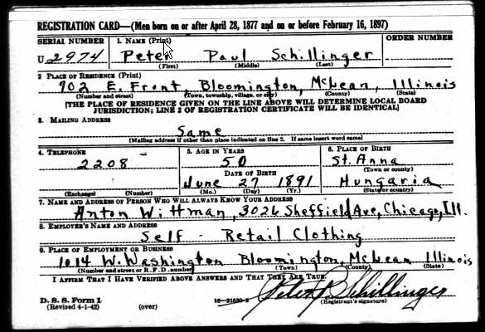 REGISTRATION CARD—(Men born on or after April 28, 1877 and on or before February 16, 1897)
SERIAL NUMBER 1. NAME (Print) ORDER NUMBER
U 2974 Peter Paul Schillinger
(First) (Middle) (Last)
2. PLACE OF RESIDENCE (Print)
702 E. Front, Bloomington, McLean, Illinois
(Number and street) (Town, township, village, or city) (County) (State)
[THE PLACE OF RESIDENCE GIVEN ON THE LINE ABOVE WILL DETERMINE LOCAL BOARD
JURISDICTION; LINE 2 OF REGISTRATION CERTIFICATE WILL BE IDENTICAL]
3. MAILING ADDRESS
Same
[Mailing address if other than place indicated on line 2. If same insert word same]
4. TELEPHONE 5. AGE IN YEARS 6. PLACE OF BIRTH
2208 50 St. Anna
(Town or county)
DATE OF BIRTH
June 27 1891 Hungaria
(Exchange) (Number) (Mo.) (Day) (Yr.) (State or country)
7. NAME AND ADDRESS OF PERSON WHO WILL ALWAYS KNOW YOUR ADDRESS
Anton Wittman, 3026 Sheffield Ave, Chicago, Ill.
8. EMPLOYER'S NAME AND ADDRESS
Self - Retail Clothing
9. PLACE OF EMPLOYMENT OR BUSINESS
1014 W. Washington Bloomington, McLean Illinois
(Number and street or R. F. D. number) (Town) (County) (State)
I AFFIRM THAT I HAVE VERIFIED ABOVE ANSWERS AND THAT THEY ARE TRUE.
Peter P. Schillinger
D. S. S. Form 1
(Revised 4-1-42) (over) (Registrant's signature)